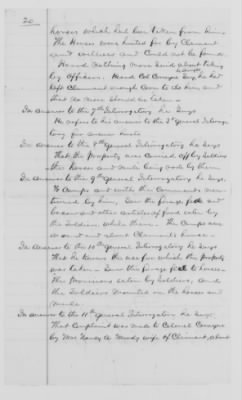 20
horses which had been taken from him.
The Horses was hunted for by Claimant
and witness and could not be found.
Heard nothing more said about taking
by Officers. Heard Col Conyer say he had
left Claimant enough Corn to do him and
that no more should be taken
In answer to the 7th Interrogatory he Says
He refers to his answer to the 3d General Interoga
tory for answer hereto
In answer to the 8th General Interrogatory he Says
That the Property was carried off by Soldiers
the horses and mule being rode by them
In answer to the 9th General Interrogatory he Says
The Camps and with the Command men
tioned by him, Saw the forage fed out
bacon and other articles of food eaten by
the Soldiers while there. The Camps was
around and about Claimants house.
In answer to the 10th General Interrogatory he Says
That he knows the use for which this property
was taken. Saw the forage fed to horses
The Provisions eaten by Soldiers, and
the Soldiers mounted on the horses and
mule.
In answer to the 11th General Interrogatory he Says
That complaint was made to Colonel Conyer
By Mrs Nancy A. Moody wife of Claimant, about